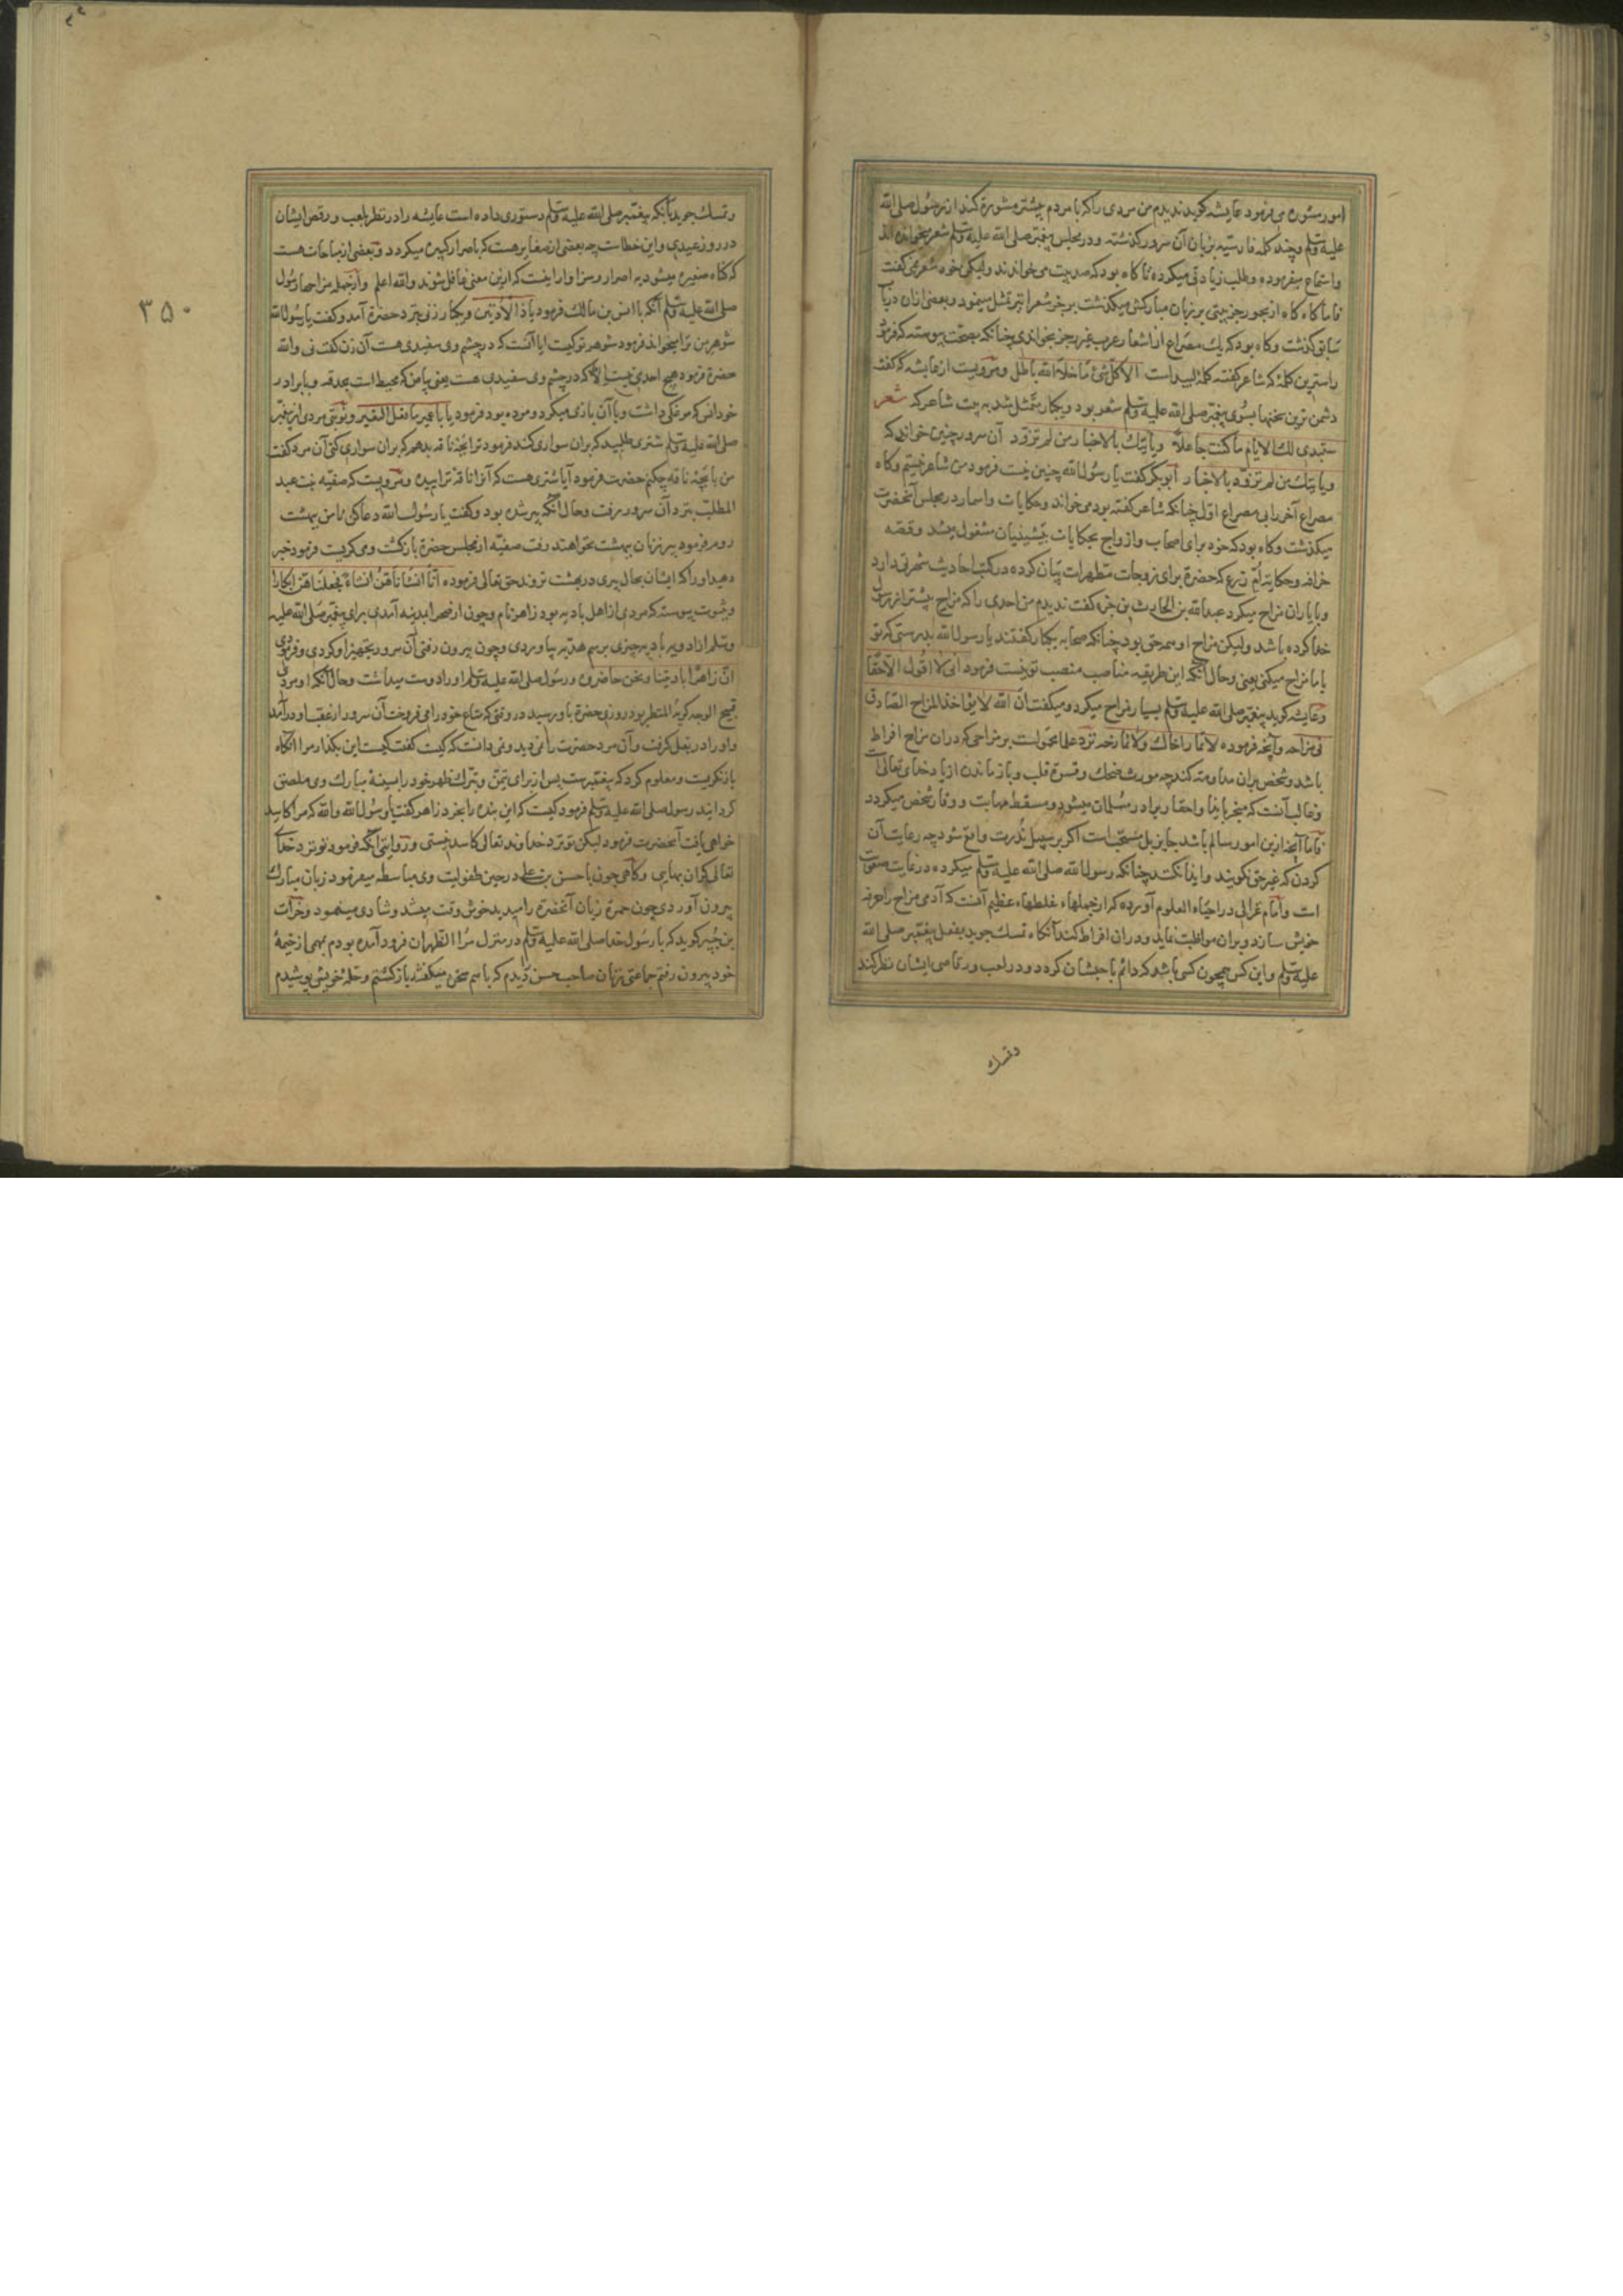 امور مشوره می فرمود عایشه گوید ندیدم من مردی را که با مردم بیشتر مشورة کند از رسول صلی الله
علیه وسلم وچند کلمه فارسیه بزبان آن سرور گذشته ودر مجلس پیغمبر صلی الله علیه وسلم شعر میخوانده اند
واستماع میفرموده وطلب زیادتی میکرده تا گاه بود که صد بیت می خواندند ولیکن خود شعر نمی گفت
فاما گاه گاه از بحور رجز بیتی بر زبان مبارکش میگذشت بر خی شعرا نیز تمثل مینمود وبعضی ازان در باب
سابق گذشت وگاه بود که یک مصراع از اشعار عرب غیر رجز بخواندی چنانکه بصحت پیوسته که فرمود
راسترین کلمۀ که شاعر گفته کلمۀ لبید است الا کل شئ ما خلا الله باطل ومرویست از عایشه که گفت
دشمن ترین سخنها بسوی پیغمبر صلی الله علیه وسلم شعر بود ویکبار متمثل شد به بیت شاعر که شعر
ستبدی لک الایام ما کنت جاهلا ویاتیک بالاخبار من لم تزود آن سرور چنین خواند که
ویاتیک من لم تزود بالاخبار ابوبکر گفت یا رسول الله چنین نیست فرمود من شاعر نیستم وگاه
مصراع آخر را بی مصراع اول چنانکه شاعر گفته بود می خواند وحکایات واسمار در مجلس آنحضرت
میگذشت وگاه بود که خود برای اصحاب وازواج بحکایات پیشینیان مشغول میشد وقصه
خرافه وحکایة ام زرع که حضرة برای زوجات مطهرات بیان کرده در کتب احادیث شهرتی دارد
وبا یاران مزاح میکرد عبدالله بن الحارث بن جزء گفت ندیدم من احدی را که مزاح بیشتر از رسول
خدا کرده باشد ولیکن مزاح او همه حق بود چنانکه صحابه یکبار گفتند یا رسول الله بدرستی که تو
با ما مزاح میکنی یعنی وحال آنکه این طریقه مناصب منصب تو نیست فرمود انی لا اقول الا حقا
وعایشه گوید پیغمبر صلی الله علیه وسلم بسیار مزاح میکرد ومیگفت ان الله لا یؤاخذ المزاح الصادق
فی مزاحه وآنچه فرموده لا تمار اخاک ولا تمازحه نزد علما محمولست بر مزاحی که دران مزاح افراط
باشد وشخص بران مداومت کند چه مورث ضحک وقسوة قلب وباز ماندن از یاد خدای تعالی است
وغالب آنست که منجر بایذا واحقار برادر مسلمان میشود ومسقط مهابت ووقار شخص میگردد
فاما آنچه ازین امور سالم باشد جایز بل مستحب است اگر بر سبیل ندرت واقع شود چه رعایت آن
کردن که غیر حق نگویند وایذا نکنند چنانکه رسول الله صلی الله علیه وسلم میکرده در غایت صعوبت
است وامام غزالی در احیاء العلوم آورده که از جملهاء غلطهاء عظیم آنست که آدمی مزاح را حرفه
خویش سازد وبران مواظبت نماید ودران افراط کند آنگاه تمسک جوید بفعل پیغمبر صلی الله
علیه وسلم واین کس همچون کسی باشد که دائم با حبشان گردد ودر لعب ورقاصی ایشان نظر کند
وتمسک
۳۵۰
وتمسک جوید بآنکه پیغمبر صلی الله علیه وسلم دستوری داده است عایشه را در نظر بلعب ورقص ایشان
در روز عیدی واین خطاست چه بعضی از صغایر هست که باصرار کبیره میگردد وبعضی از مباحات هست
که گناه صغیره میشود به اصرار وسزاوار انیست که ازین معنی غافل شوند والله اعلم وازجمله مزاحها رسول
صلی الله علیه وسلم آنکه با انس بن مالک فرمود یا ذا الاذنین ویکبار زنی نزد حضرة آمد وگفت یا رسول الله
شوهر من ترا میخواند فرمود شوهر تو کیست ایا آنست که در چشم وی سفیدی هست آن زن گفت نی والله
حضرة فرمود هیچ احدی نیست الا که در چشم وی سفیدی هست یعنی بیاض که محیط است بحدقه وبا برادر
خود انس که مرغکی داشت وبا آن بازی میکرد ومرده بود فرمود یا با عمیر ما فعل النغیر ونوبتی مردی از پیغمبر
صلی الله علیه وسلم شتری طلبید که بران سواری کند فرمود ترا بچۀ ناقه بدهم که بران سواری کنی آن مرد گفت
من با بچۀ ناقه چکنم حضرت فرمود آیا شتری هست که آنرا ناقه نزاییده ومرویست که صفیه بنت عبد
المطلب نزد آن سرور رفت وحال آنکه پیر شده بود وگفت یا رسول الله دعا کن تا من ببهشت
روم فرمود پیر زنان ببهشت نخواهند رفت صفیه از مجلس حضرة بازگشت ومی گریست فرمود خبر
دهید او را که ایشان بحال پیری در بهشت نروند حق تعالی فرموده انا انشأناهن انشاء فجعلناهن ابکارا
وبثبوت پیوسته که مردی از اهل بادیه بود زاهر نام وچون از صحرا بمدینه آمدی برای پیغمبر صلی الله علیه
وسلم ازادویه بادیه چیزی برسم هدیه بیاوردی وچون بیرون رفتی آن سرور تجهیز او کردی وفرمودی
ان زاهرا بادیتنا ونحن حاضروه ورسول صلی الله علیه وسلم او را دوست میداشت وحال آنکه او مردی
قبیح الوجه کریه المنظر بود روزی حضرة باو رسید در وقتی که متاع خود را می فروخت آن سرور از عقب او در آمد
واو را در بغل گرفت وآن مرد حضرت را نمی دید ونمی دانست که کیست گفت کیست این بگذار مرا آنگاه
بازنگریست ومعلوم کرد که پیغمبرست پس از برای تیمن وتبرک ظهر خود را بسینۀ مبارک وی ملصق
گردانید رسول صلی الله علیه وسلم فرمود کیست که این بنده را بخرد زاهر گفت یا رسول الله والله که مرا کاسد
خواهی یافت آنحضرت فرمود لیکن تو نزد خداوند تعالی کاسد نیستی وروایتی آنکه فرمود تو نزد خدای
تعالی گران بهایی وگاهی چون با حسن بن علی در حین طفولیت وی مباسطه میفرمود زبان مبارک
بیرون آوردی چون حمرة زبان آنحضرة را میدید خوش وقت میشد وشادی مینمود وخوات
بن جبیر گوید که با رسول خدا صلی الله علیه وسلم در منزل مر الظهران فرود آمده بودم مهمی از خیمۀ
خود بیرون رفتم جماعتی زنان صاحب حسن دیدم که با هم سخن میگفتند بازگشتم وحلۀ خویش پوشیدم